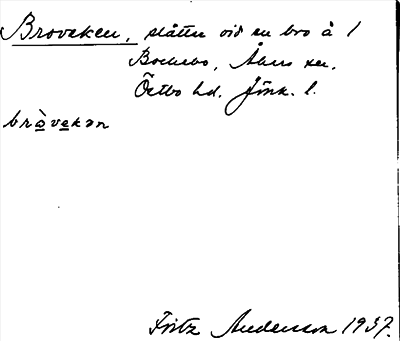 Broveken, slåtter vid en bro å 1
Bockebo, Åkers sn.
Östbo hd. Jönk. l.
bròvekən
Fritz Andersson 1937.